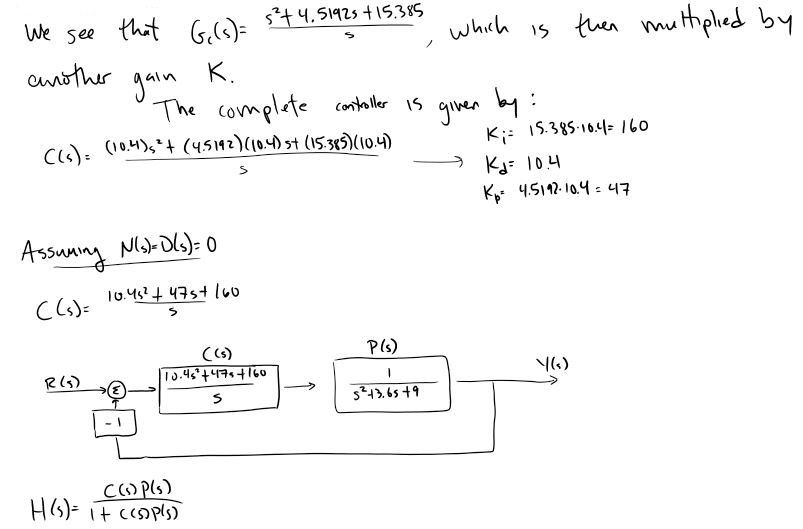 We see that Gc(s)= s²+4.5192s+15.385 / s , which is then multiplied by
another gain K.
The complete controller is given by:
C(s)= (10.4)s²+(4.5192)(10.4)s+(15.385)(10.4) / s → Ki= 15.385·10.4=160
Kd= 10.4
Kp= 4.5192·10.4=47
Assuming N(s)=D(s)=0
C(s)= 10.4s²+47s+160 / s
C(s)
P(s)
R(s)
Σ
10.4s²+47s+160 / s
1 / s²+3.6s+9
Y(s)
-1
H(s)= C(s)P(s) / 1+C(s)P(s)